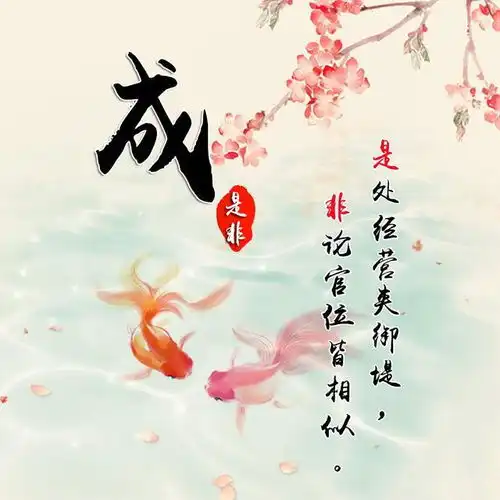 成
是非
是处经营夹御堤，
非论官位皆相似。